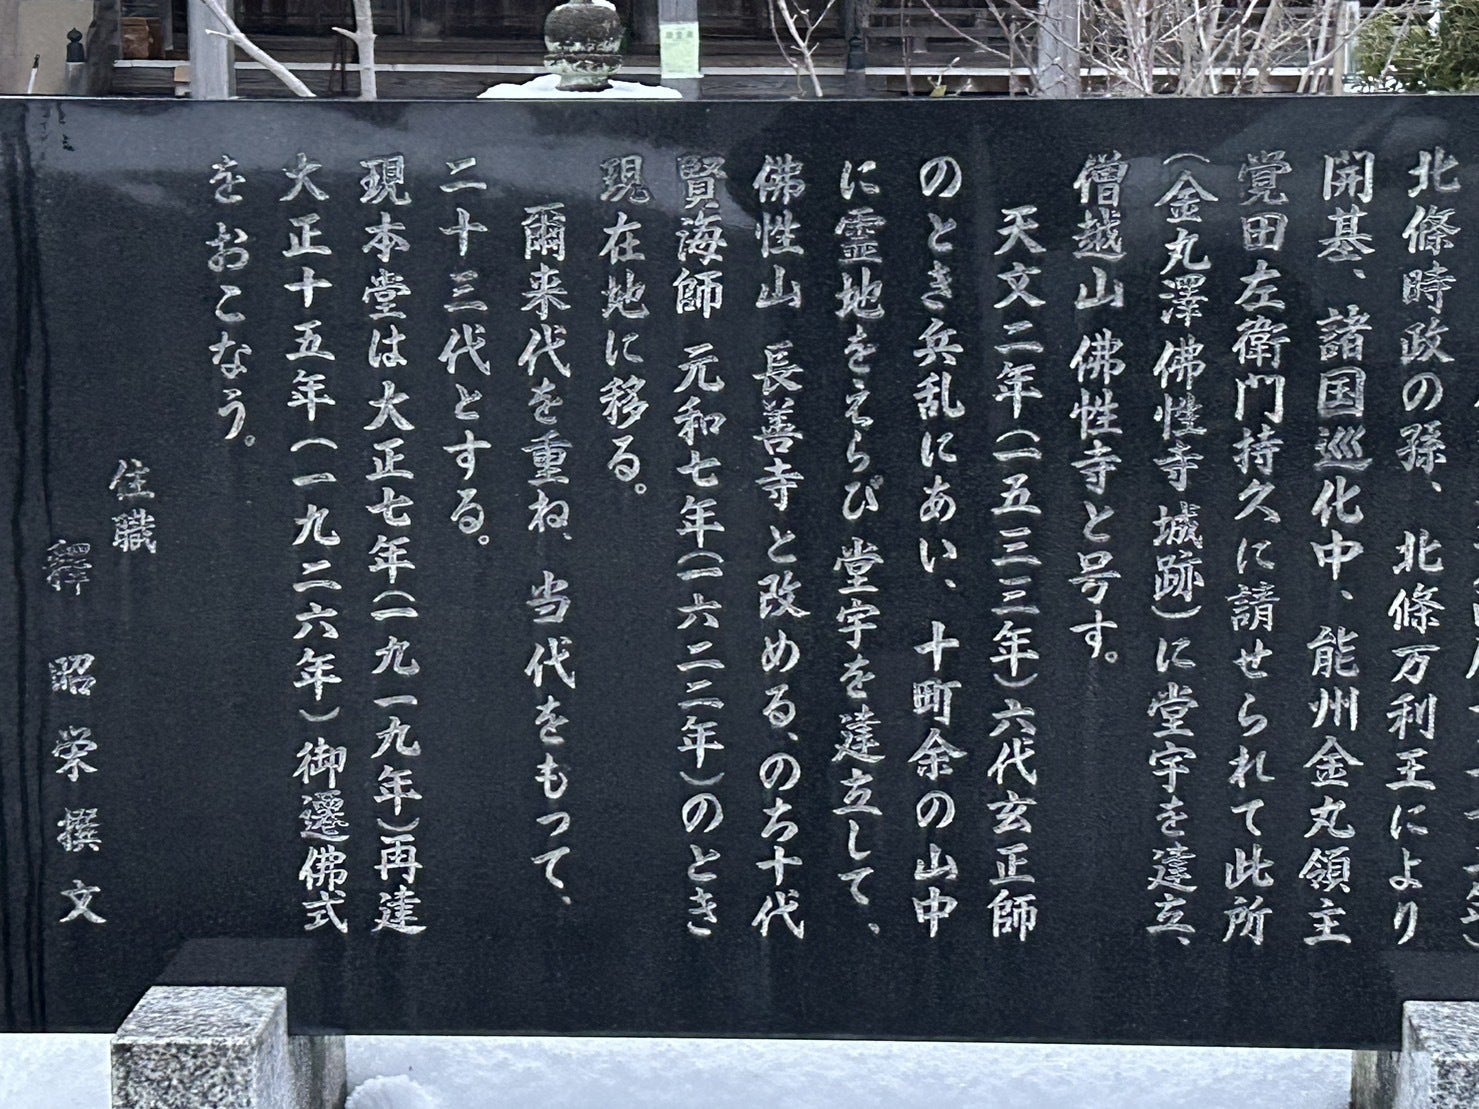 北條時政の孫、北條万利王により
開基、諸国巡化中、能州金丸領主
覚田左衛門持久に請せられて此所
(金丸澤佛性寺城跡)に堂宇を建立、
僧越山 佛性寺と号す。
天文二年(一五三三年)六代玄正師
のとき兵乱にあい、十町余の山中
に霊地をえらび 堂宇を建立して、
佛性山 長善寺と改める、のち十代
賢海師 元和七年(一六二二年)のとき
現在地に移る。
爾来代を重ね、当代をもって、
二十三代とする。
現本堂は大正七年(一九一九年)再建
大正十五年(一九二六年)御遷佛式
をおこなう。
住職
釋 昭栄撰文